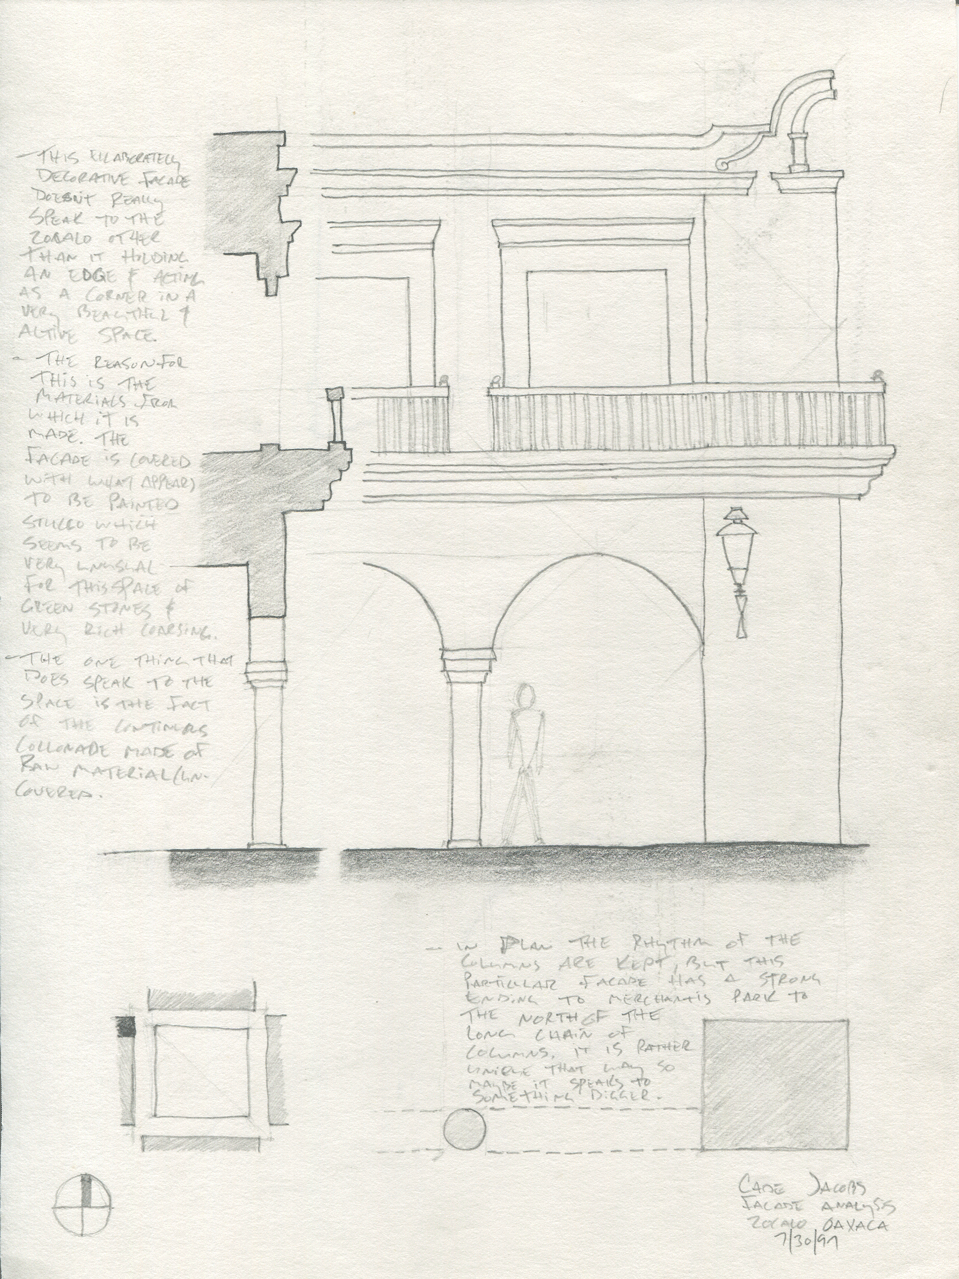 - THIS ELLABORATELY
DECORATIVE FACADE
DOESN'T REALLY
SPEAK TO THE
ZOCALO OTHER
THAN IT HOLDING
AN EDGE & ACTING
AS A CORNER IN A
VERY BEAUTIFUL &
ACTIVE SPACE.
- THE REASON FOR
THIS IS THE
MATERIALS FROM
WHICH IT IS
MADE. THE
FACADE IS COVERED
WITH WHAT APPEARS
TO BE PAINTED
STUCCO WHICH
SEEMS TO BE
VERY UNUSUAL
FOR THIS SPACE OF
GREEN STONES &
VERY RICH COARSING.
- THE ONE THING THAT
DOES SPEAK TO THE
SPACE IS THE FACT
OF THE CONTINUOUS
COLLONADE MADE OF
RAW MATERIAL/UN-
COVERED.
- IN PLAN THE RHYTHM OF THE
COLUMNS ARE KEPT, BUT THIS
PARTICULAR FACADE HAS A STRONG
ENDING TO MERCHANTS PARK TO
THE NORTH OF THE
LONG CHAIN OF
COLUMNS. IT IS RATHER
UNIQUE THAT WAY SO
MAYBE IT SPEAKS TO
SOMETHING BIGGER.
CADE JACOBS
FACADE ANALYSIS
ZOCALO OAXACA
7/30/97